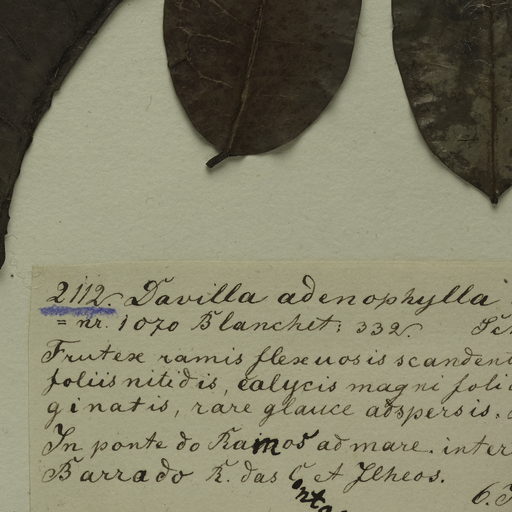 2112. Davilla adenophylla
= nr. 1070 Blanchet: 332.
Frutex ramis flexuosis
foliis nitidis, calycis magni
ginatis, rare glauce adspersis.
In ponte do Ramos ad mare. inter
Barra do R. das C et Ilheos.
ontas
6.